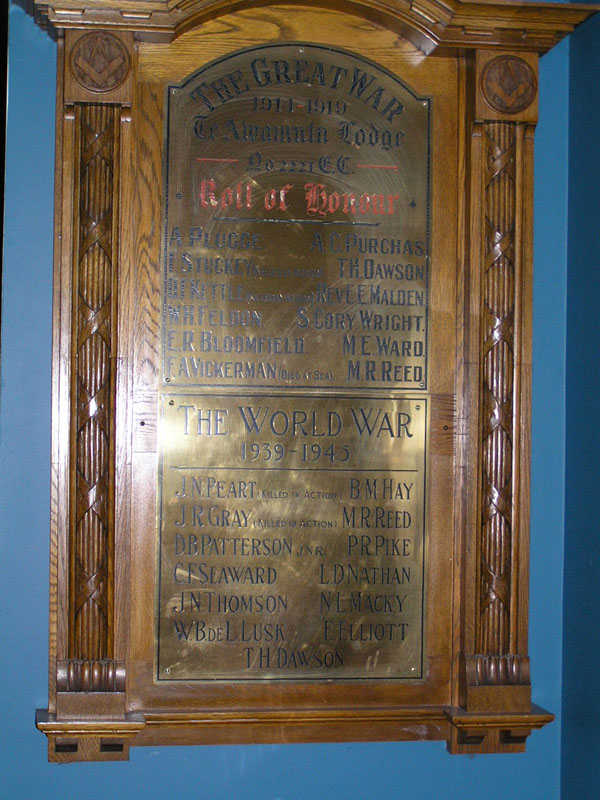 THE GREAT WAR
1914-1919
Te Awamutu Lodge
No. 2221 E.C.
Roll of Honour
A. PLUGGE A. G. PURCHAS.
STUCKEY T.H. DAWSON
KETTLE REV. E.E. MALDEN.
W.H. FELDON S. CORY WRIGHT.
E.R. BLOOMFIELD. M.E. WARD.
F.A. VICKERMAN (DIED AT SEA). M.R. REED.
THE WORLD WAR
1939-1945
J.N. PEART (KILLED IN ACTION) B.M HAY
J.R. GRAY (KILLED IN ACTION) M.R. REED
D.B PATTERSON JNR. P.R. PIKE
C.F. SEAWARD L.D. NATHAN
J.N. THOMSON N.L. MACKY
W.B DE L. LUSK E. ELLIOTT
T.H. DAWSON